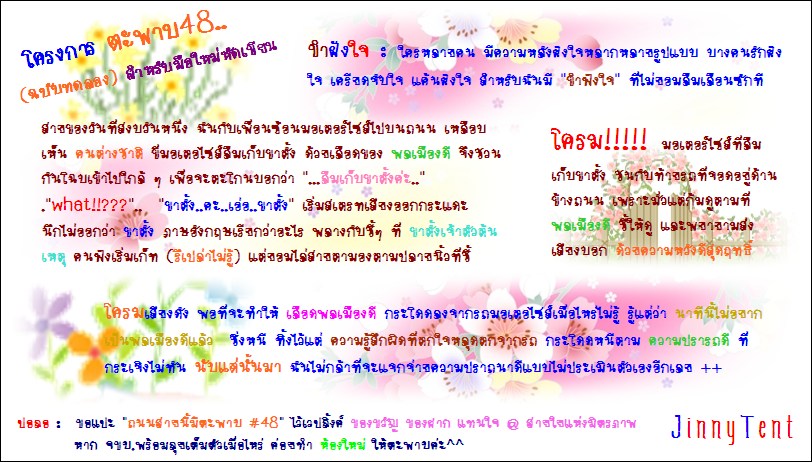 โครงการ ตะพาบ48..
(ฉบับทดลอง) สำหรับมือใหม่หัดเขียน
ขำฝังใจ : ใครหลายคน มีความหลังฝังใจหลากหลายรูปแบบ บางคนรักฝัง
ใจ เครียดจับใจ แค้นฝังใจ สำหรับฉันมี "ขำฝังใจ" ที่ไม่ยอมลืมเลือนซักที
สายของวันที่สงบวันหนึ่ง ฉันกับเพื่อนซ้อนมอเตอร์ไซส์ไปบนถนน เหลือบ
เห็น คนต่างชาติ ขี่มอเตอไซส์ลืมเก็บขาตั้ง ด้วยเลือดของ พลเมืองดี จึงชวน
กันโฉบเข้าไปใกล้ ๆ เพื่อจะตะโกนบอกว่า "...ลืมเก็บขาตั้งค่ะ.."
."what!!???"... "ขาตั้ง..ค่ะ..เอ่อ..ขาตั้ง" เริ่มสเตรทเสียงออกกระแดะ
นึกไม่ออกว่า ขาตั้ง ภาษาอังกฤษเรียกว่าอะไร พลางกับชี้ๆ ที่ ขาตั้งเจ้าตัวต้น
เหตุ คนฟังเริ่มเก็ท (รึเปล่าไม่รู้) แต่ยอมไล่สายตามองตามปลายนิ้วที่ชี้
โครม!!!!! มอเตอร์ไซส์ที่ลืม
เก็บขาตั้ง ชนกับท้ายรถที่จอดอยู่ด้าน
ข้างถนน เพราะมัวแต่ก้มดูตามที่
พลเมืองดี ชี้ให้ดู และพยายามส่ง
เสียงบอก ด้วยความหวังดีสุดฤทธิ์
โครมเสียงดัง พอที่จะทำให้ เลือดพลเมืองดี กระโดดลงจากรถมอเตอไซส์เมื่อไหร่ไม่รู้ รู้แต่ว่า นาทีนี้ไม่อยาก
เป็นพลเมืองดีแล้ว ซึ่งหนี ทิ้งไว้แต่ ความรู้สึกผิดที่ตกใจหลุดตกจากรถ กระโดดหนีตาม ความปรารถดี ที่
กระเจิงไม่ทัน นับแต่นั้นมา ฉันไม่กล้าที่จะแจกจ่ายความปราถนาดีแบบไม่ประเมินตัวเองอีกเลย ++
ปอลอ : ขอแปะ "ถนนสายนี้มีตะพาบ #48" ไว้เวปลิ้งค์ ของขวัญ ของฝาก แทนใจ @ สายใยแห่งมิตรภาพ
หาก จขบ.พร้อมลุยเต็มตัวเมื่อไหร่ ค่อยทำ ห้องใหม่ ให้ตะพาบค่ะ^^
JinnyTent